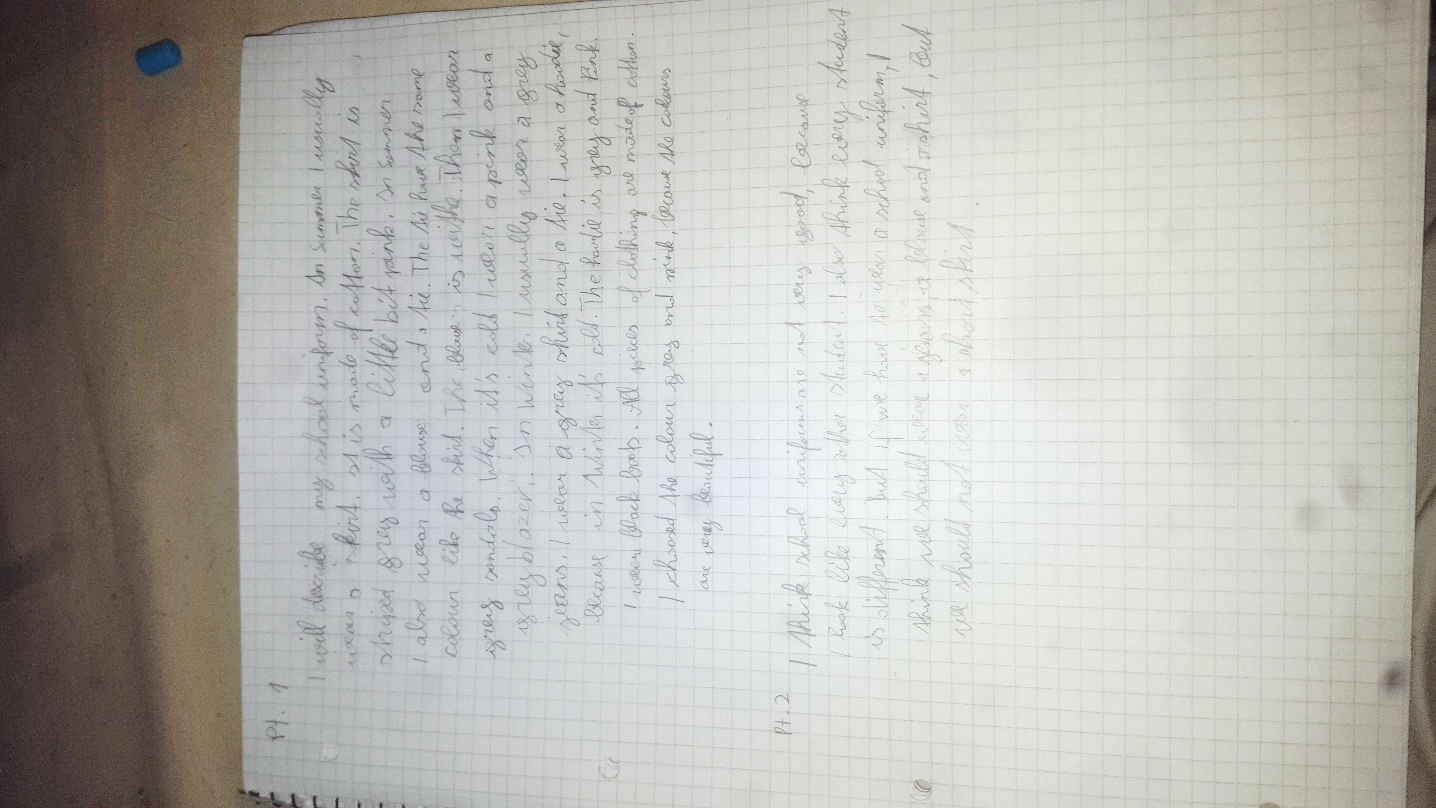 Pt. 1
I will describe my school uniform. In summer I usually
wear a skirt. It is made of cotton. The skirt is
striped grey with a little bit pink. In summer
I also wear a blouse and a tie. The tie have the same
colour like the skirt. The blouse is white. Then I wear
grey sandals. When it's cold I wear a pink and a
grey blazer. In winter I usually wear a grey
jeans. I wear a grey shirt and a tie. I wear a hoodie,
because in winter it's cold. The hoodie is grey and pink.
I wear black boots. All pieces of clothing are made of cotton.
I choosed the colour grey and pink, because the colours
are very beautiful.
Pt. 2
I think school uniforms are not very good, because
I look like every other student. I also think every student
is different. But if we have to wear a school uniform, I
think we should wear a jeans, a blouse and a shirt, but
we should not wear a short skirt.